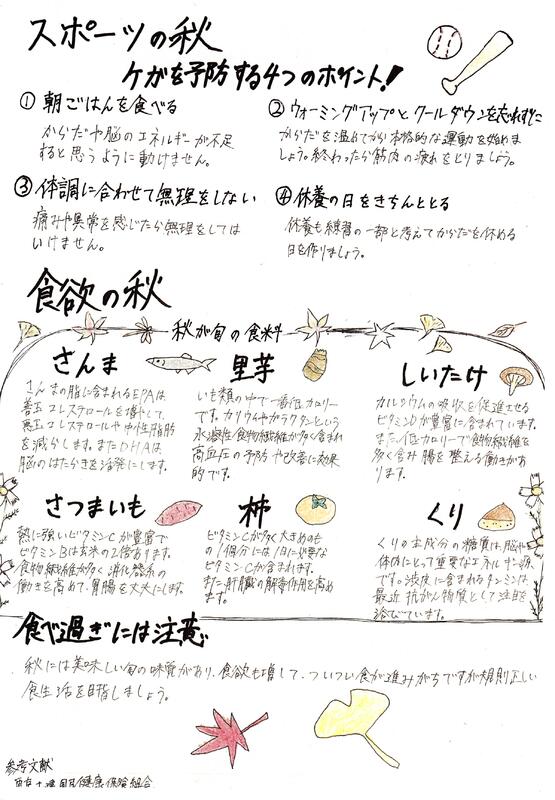 スポーツの秋
ケガを予防する4つのポイント!
① 朝ごはんを食べる
からだや脳のエネルギーが不足
すると思うように動けません。
② ウォーミングアップとクールダウンを忘れずに
からだを温めてから本格的な運動を始めま
しょう。終わったら筋肉の疲れをとりましょう。
③ 体調に合わせて無理をしない
痛みや異常を感じたら無理をしては
いけません。
④ 休養の日をきちんととる
休養も練習の一部と考えてからだを休める
日を作りましょう。
食欲の秋
秋が旬の食料
さんま
さんまの脂に含まれるEPAは
善玉コレステロールを増やして、
悪玉コレステロールや中性脂肪
を減らします。またDHAは
脳のはたらきを活発にします。
里芋
いも類の中で一番低カロリー
です。カリウムやガラクタンという
水溶性食物繊維が多く含まれ
高血圧の予防や改善に効果
的です。
しいたけ
カルシウムの吸収を促進させる
ビタミンDが豊富に含まれています。
また低カロリーで食物繊維を
多く含み腸を整える働きがあ
ります。
さつまいも
熱に強いビタミンCが豊富で
ビタミンBは玄米の2倍あります。
食物繊維が多く消化器系の
働きを高めて、胃腸を丈夫にします。
柿
ビタミンCが多く大きめのも
の1個分には1日に必要な
ビタミンCが含まれます。
また肝臓の解毒作用を高め
ます。
くり
くりの主成分の糖質は、脳や
体内にとって重要なエネルギー源
です。渋皮に含まれるタンニンは、
最近抗がん物質として注目を
浴びています。
食べ過ぎには注意
秋には美味しい旬の味覚があり、食欲も増して、ついつい食が進みがちですが規則正しい
食生活を目指しましょう。
参考文献
健康保険組合